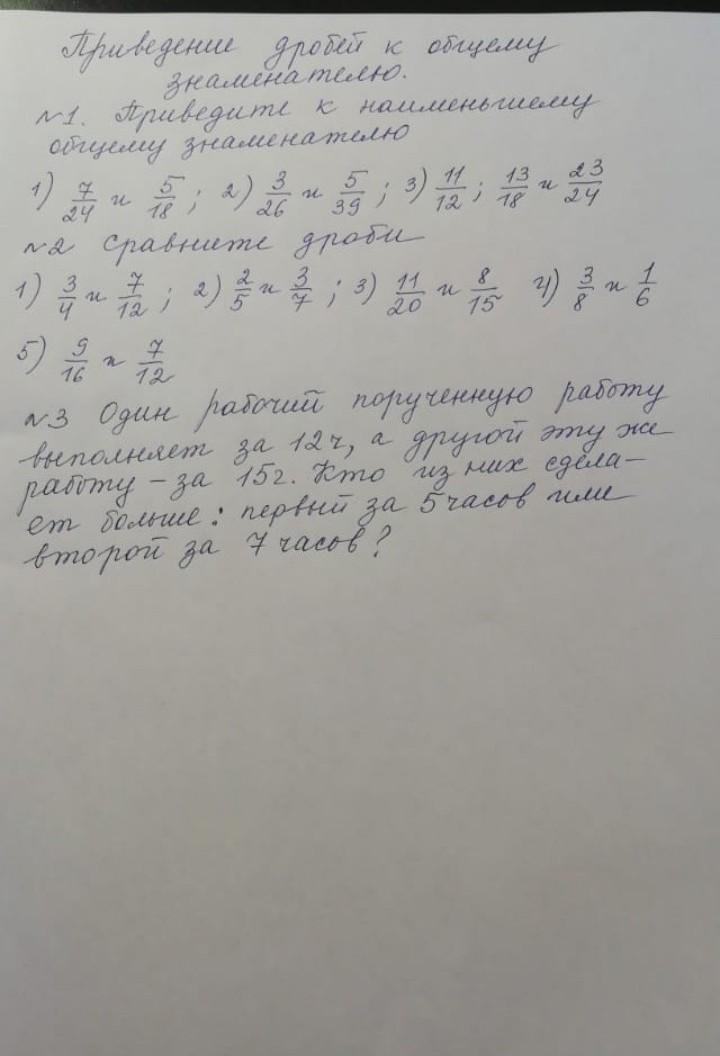 Приведение дробей к общему
знаменателю.
№1. Приведите к наименьшему
общему знаменателю
1) 7/24 и 5/18 ; 2) 3/26 и 5/39 ; 3) 11/12 ; 13/18 и 23/24
№2 Сравните дроби
1) 3/4 и 7/12 ; 2) 2/5 и 3/7 ; 3) 11/20 и 8/15 4) 3/8 и 1/6
5) 9/16 и 7/12
№3 Один рабочий порученную работу
выполняет за 12ч, а другой эту же
работу – за 15ч. Кто из них сдела-
ет больше: первый за 5 часов или
второй за 7 часов?